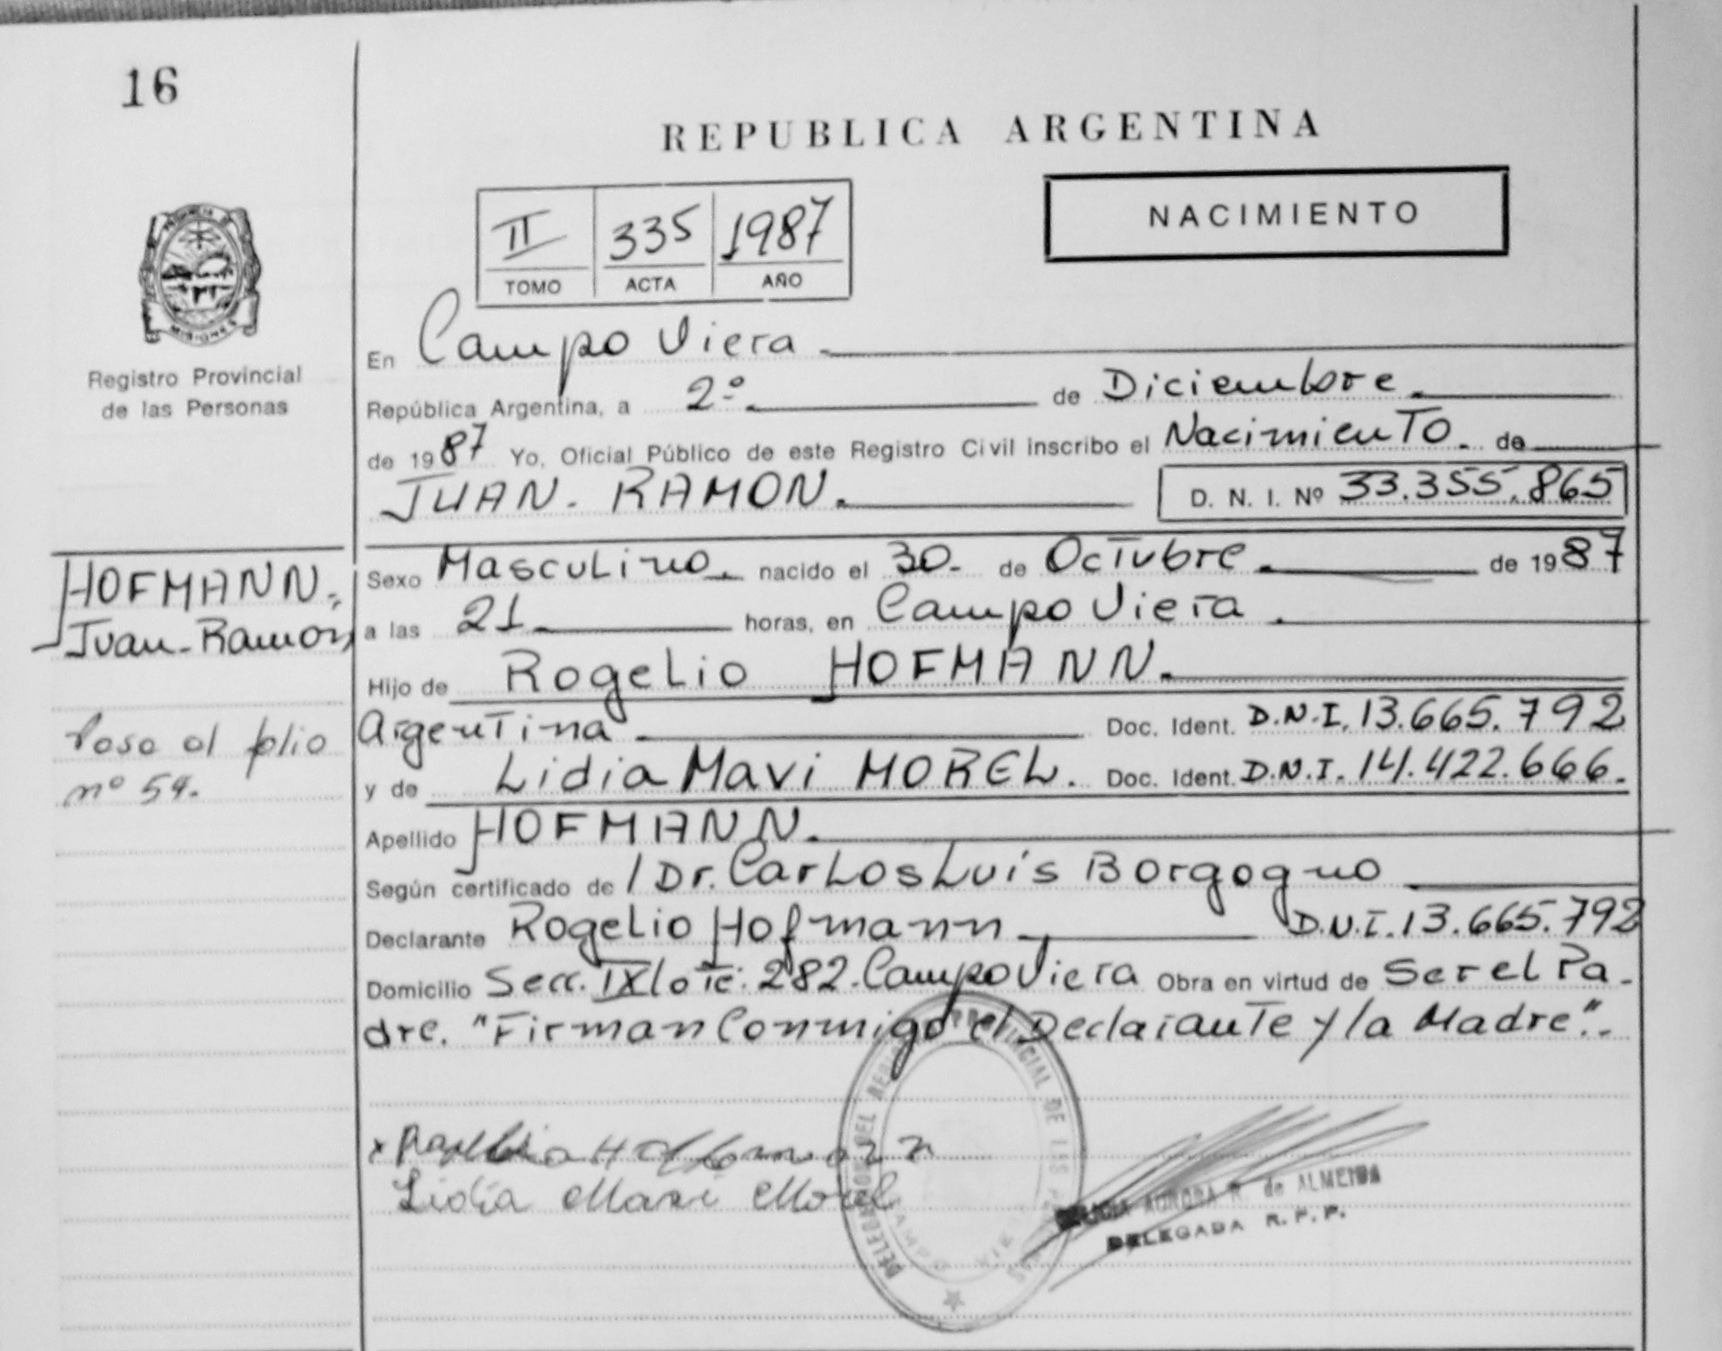 16
REPUBLICA ARGENTINA
NACIMIENTO
II 335 1987
TOMO ACTA AÑO
MISIONES
Registro Provincial
de las Personas
En Campo Viera
República Argentina, a 2º. de Diciembre
de 1987 Yo, Oficial Público de este Registro Civil inscribo el Nacimiento. de
JUAN. RAMON. D. N. I. Nº 33.355.865
HOFMANN,
Juan-Ramon
Sexo Masculino. nacido el 30- de Octubre de 1987
a las 21 horas, en Campo Viera
Hijo de Rogelio HOFMANN.
Argentina Doc. Ident. D.N.I. 13.665.792
y de Lidia Mavi MOREL. Doc. Ident. D.N.I. 14.422.666.
Paso al folio
nº 59.
Apellido HOFMANN.
Según certificado de / Dr. Carlos Luis Borgogno
Declarante Rogelio Hofmann D.N.I. 13.665.792
Domicilio Secc. IX lote: 282. Campo Viera Obra en virtud de Ser el Pa-
dre. "Firman Conmigo el Declarante y la Madre".
x Rogelio Hoffmann
Lidia Mavi Morel
DELEGACION DEL REGISTRO PROVINCIAL DE LAS PERSONAS
CAMPO VIERA
AURORA R. de ALMEIDA
DELEGADA R. P. P.